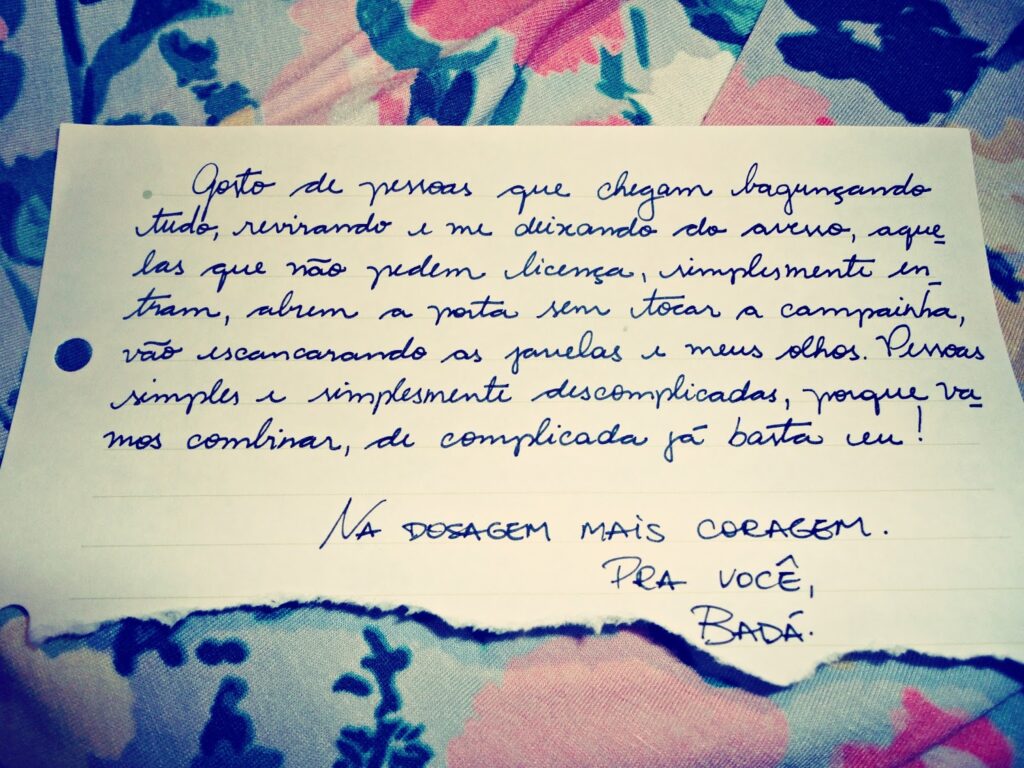 Gosto de pessoas que chegam bagunçando
tudo, revirando e me deixando do avesso, aque
las que não pedem licença, simplesmente en
tram, abrem a porta sem tocar a campainha,
vão escancarando as janelas e meus olhos. Pessoas
simples e simplesmente descomplicadas, porque va
mos combinar, de complicada já basta eu!
NA DOSAGEM MAIS CORAGEM.
PRA VOCÊ,
BADÁ.